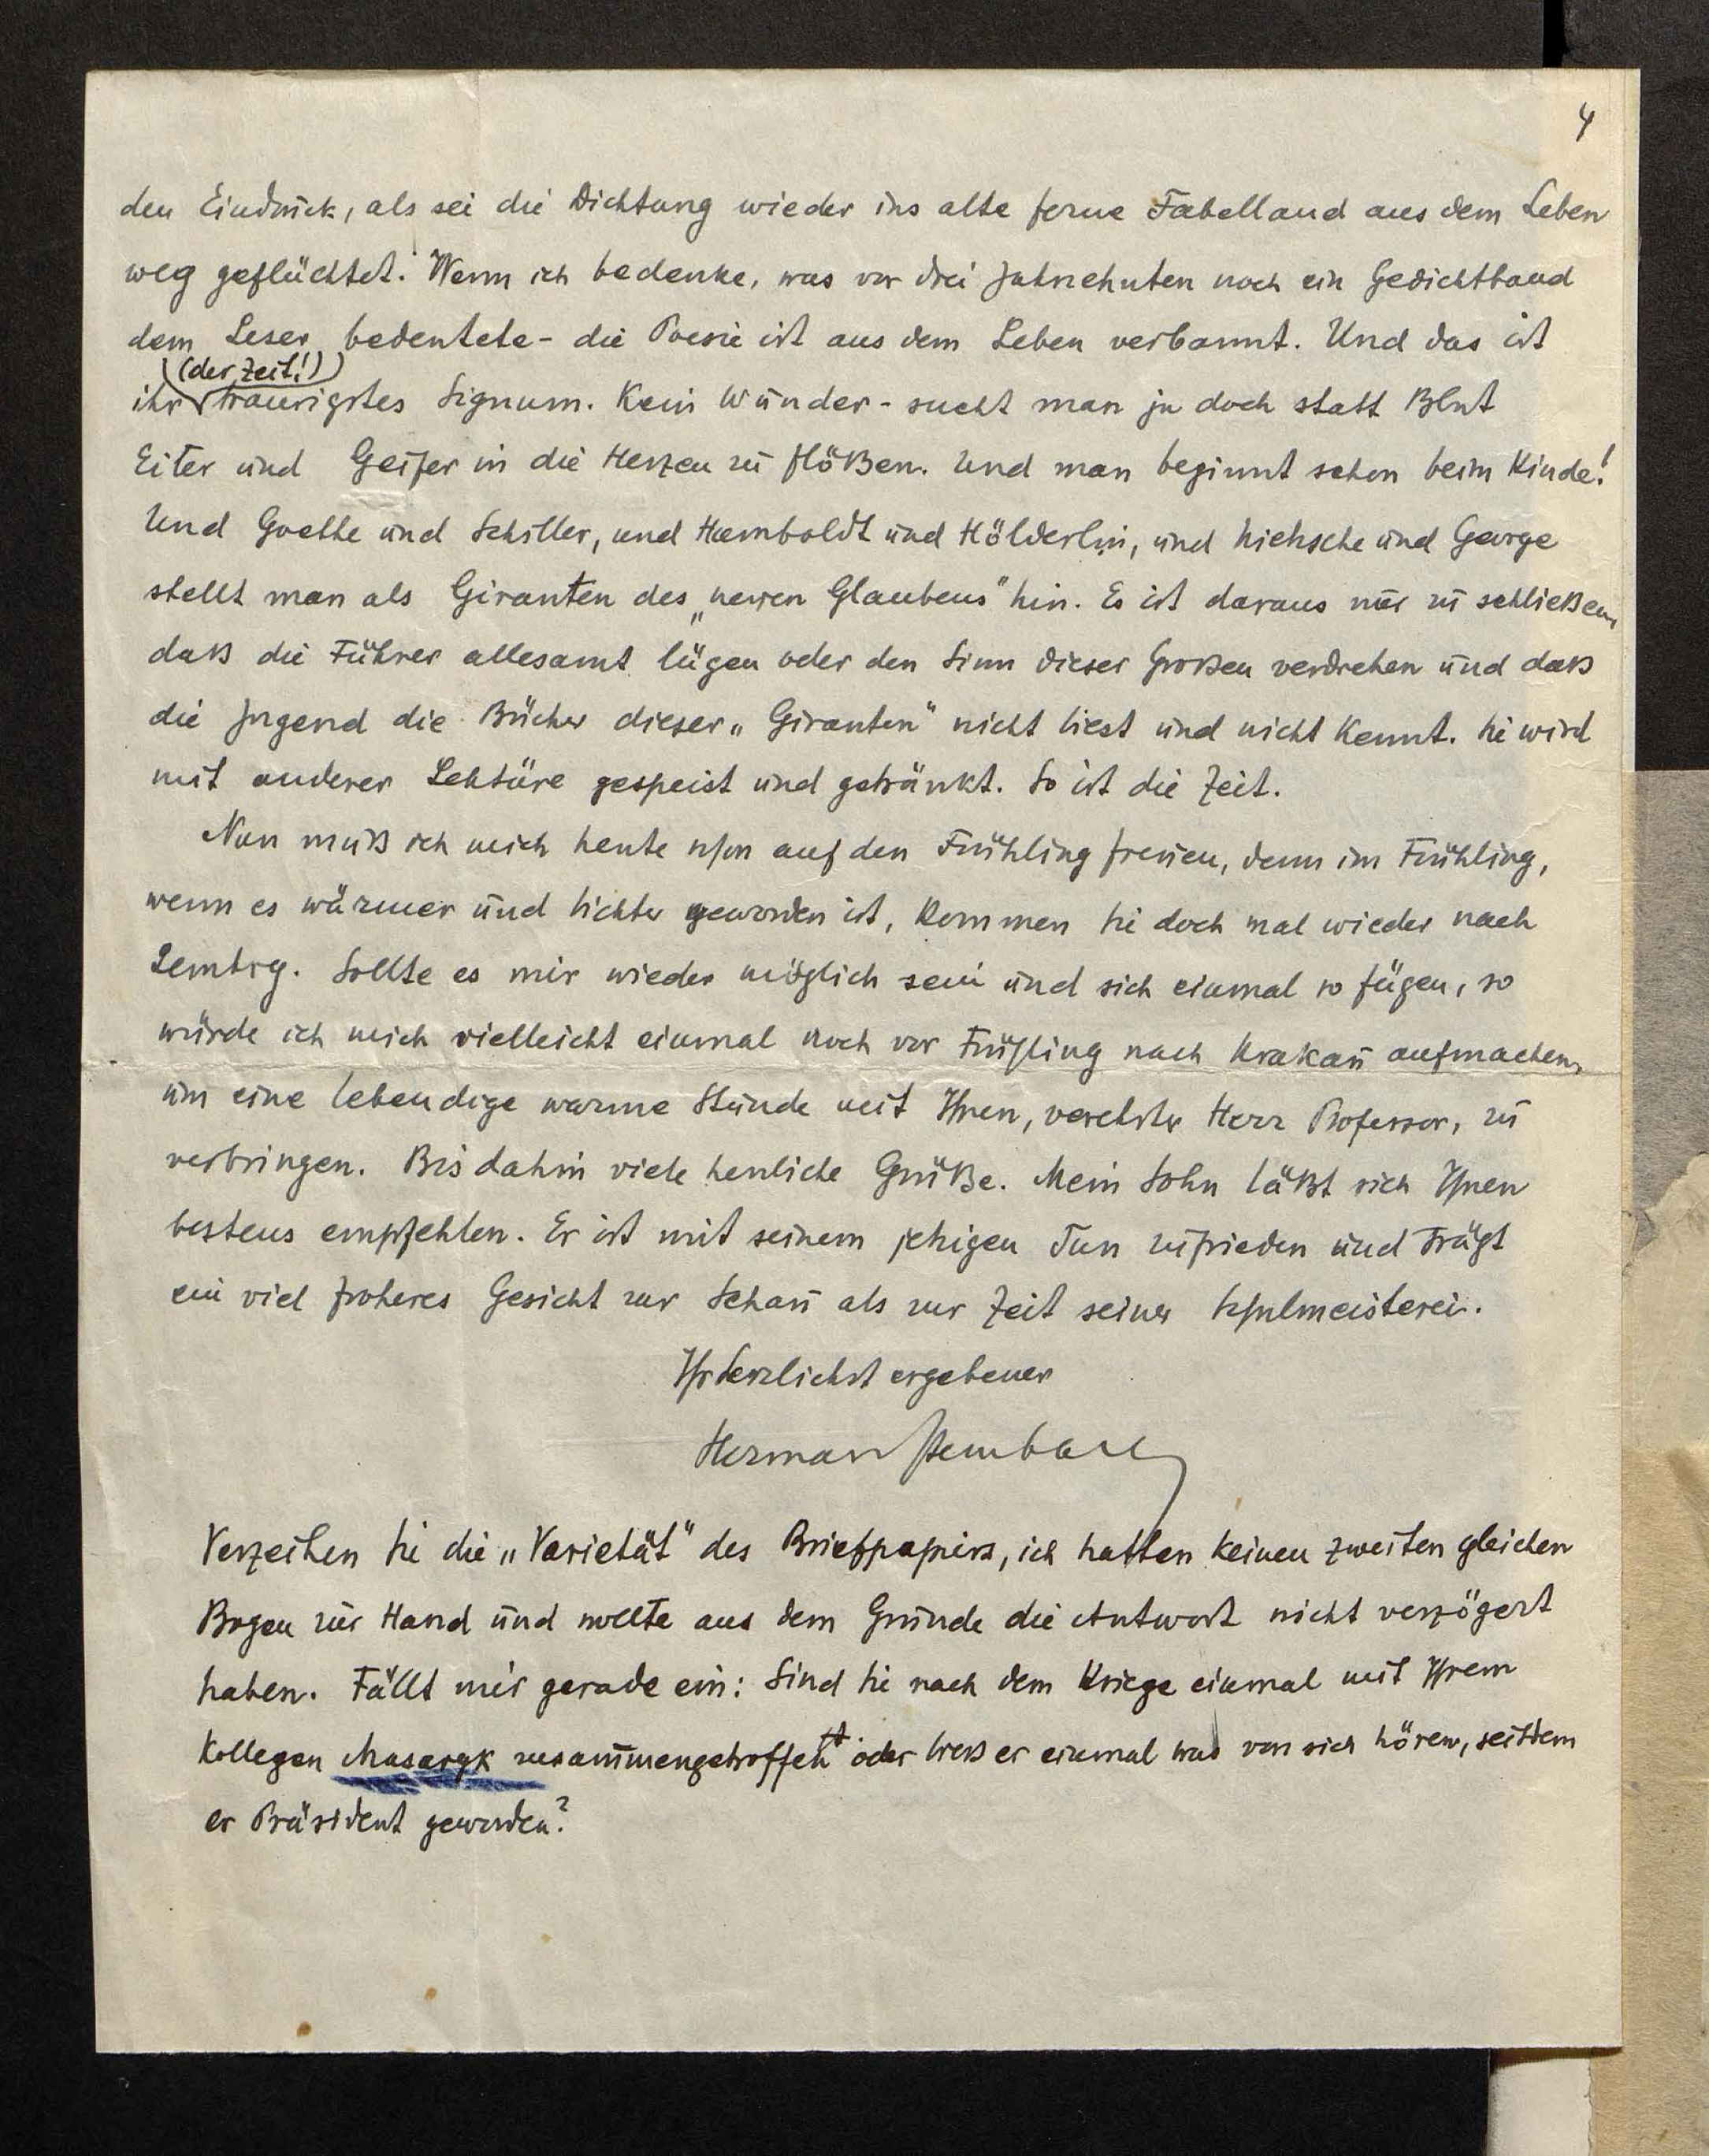 4
den Eindruck, als sei die Dichtung wieder ins alte ferne Fabelland aus dem Leben
weg geflüchtet. Wenn ich bedenke, was vor drei Jahrzehnten noch ein Gedichtband
dem Leser bedeutete - die Poesie ist aus dem Leben verbannt. Und das ist
(der Zeit!)
ihr traurigstes Signum. Kein Wunder - sucht man ja doch statt Blut
Eiter und Geifer in die Herzen zu flößen. Und man beginnt schon beim Kinde!
Und Goethe und Schiller, und Humboldt und Hölderlin, und Nietzsche und George
stellt man als Giranten des „neuen Glaubens" hin. Es ist daraus nur zu schließen,
daß die Führer allesamt lügen oder den Sinn dieser Großen verdrehen und daß
die Jugend die Bücher dieser „Giranten" nicht liest und nicht kennt. Sie wird
mit anderer Lektüre gespeist und getränkt. So ist die Zeit.
Nun muß ich mich heute schon auf den Frühling freuen, denn im Frühling,
wenn es wärmer und lichter geworden ist, kommen Sie doch mal wieder nach
Lemberg. Sollte es mir wieder möglich sein und sich einmal so fügen, so
würde ich mich vielleicht einmal noch vor Frühling nach Krakau aufmachen,
um eine lebendige warme Stunde mit Ihnen, verehrter Herr Professor, zu
verbringen. Bis dahin viele herzliche Grüße. Mein Sohn läßt sich Ihnen
bestens empfehlen. Er ist mit seinem jetzigen Tun zufrieden und trägt
ein viel froheres Gesicht zur Schau als zur Zeit seiner Schulmeisterei.
Ihr herzlichst ergebener
Herman Sternbach
Verzeihen Sie die „Varietät" des Briefpapiers, ich hatten keinen zweiten gleichen
Bogen zur Hand und wollte aus dem Grunde die Antwort nicht verzögert
haben. Fällt mir gerade ein: Sind Sie nach dem Kriege einmal mit Ihrem
Kollegen Masaryk zusammengetroffen oder ließ er einmal was von sich hören, seitdem
er Präsident geworden?